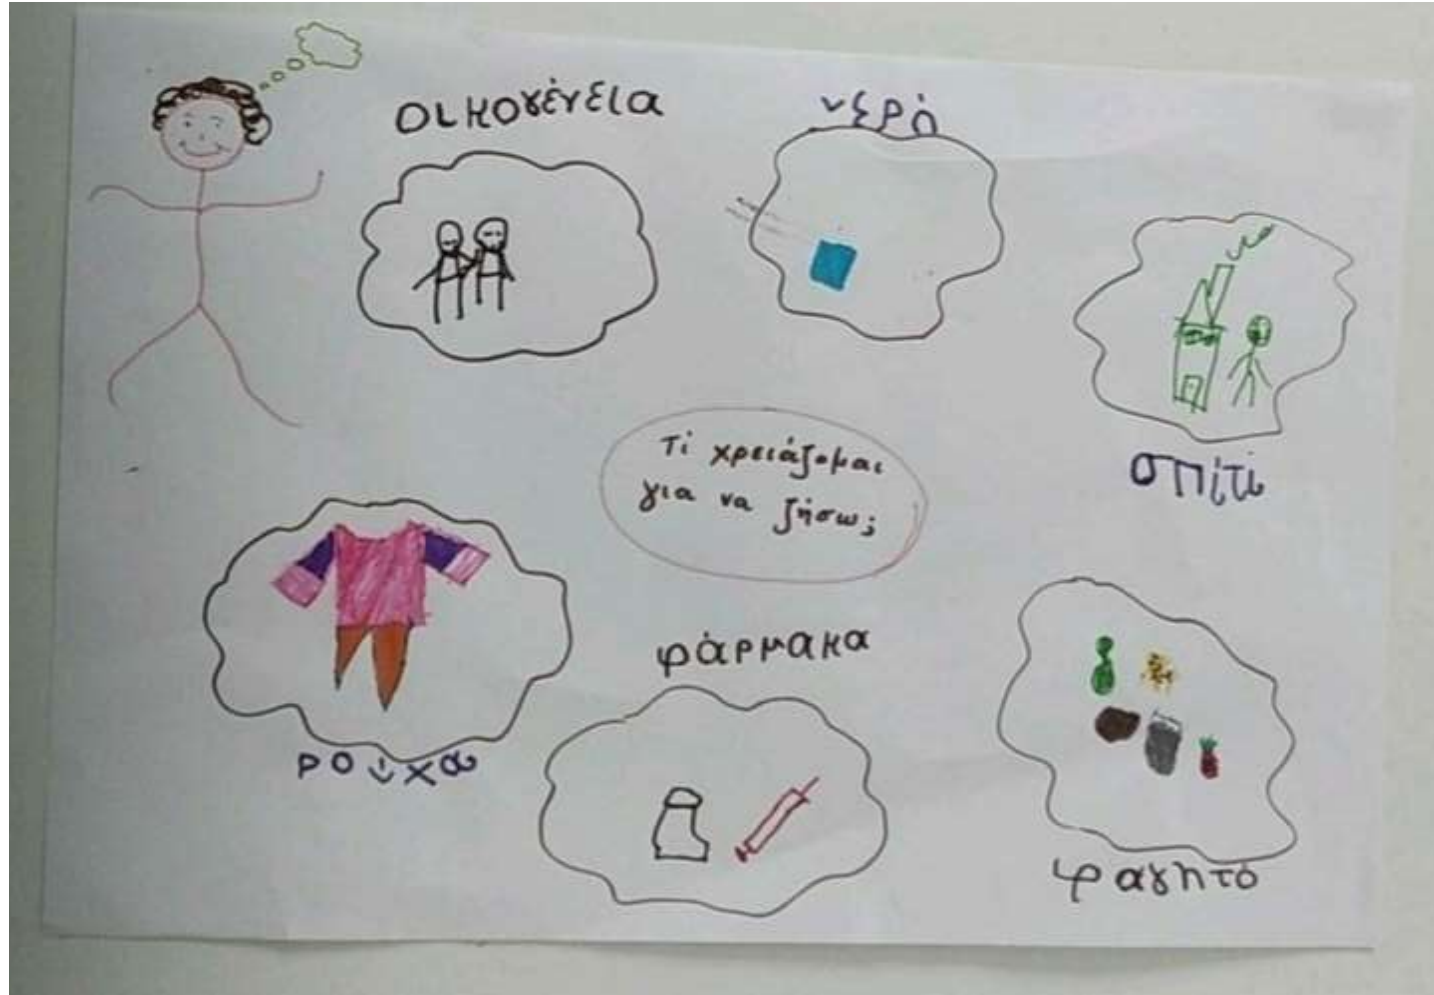 οικογένεια
νερό
σπίτι
Τί χρειάζομαι
για να ζήσω;
ρούχα
φάρμακα
φαγητό